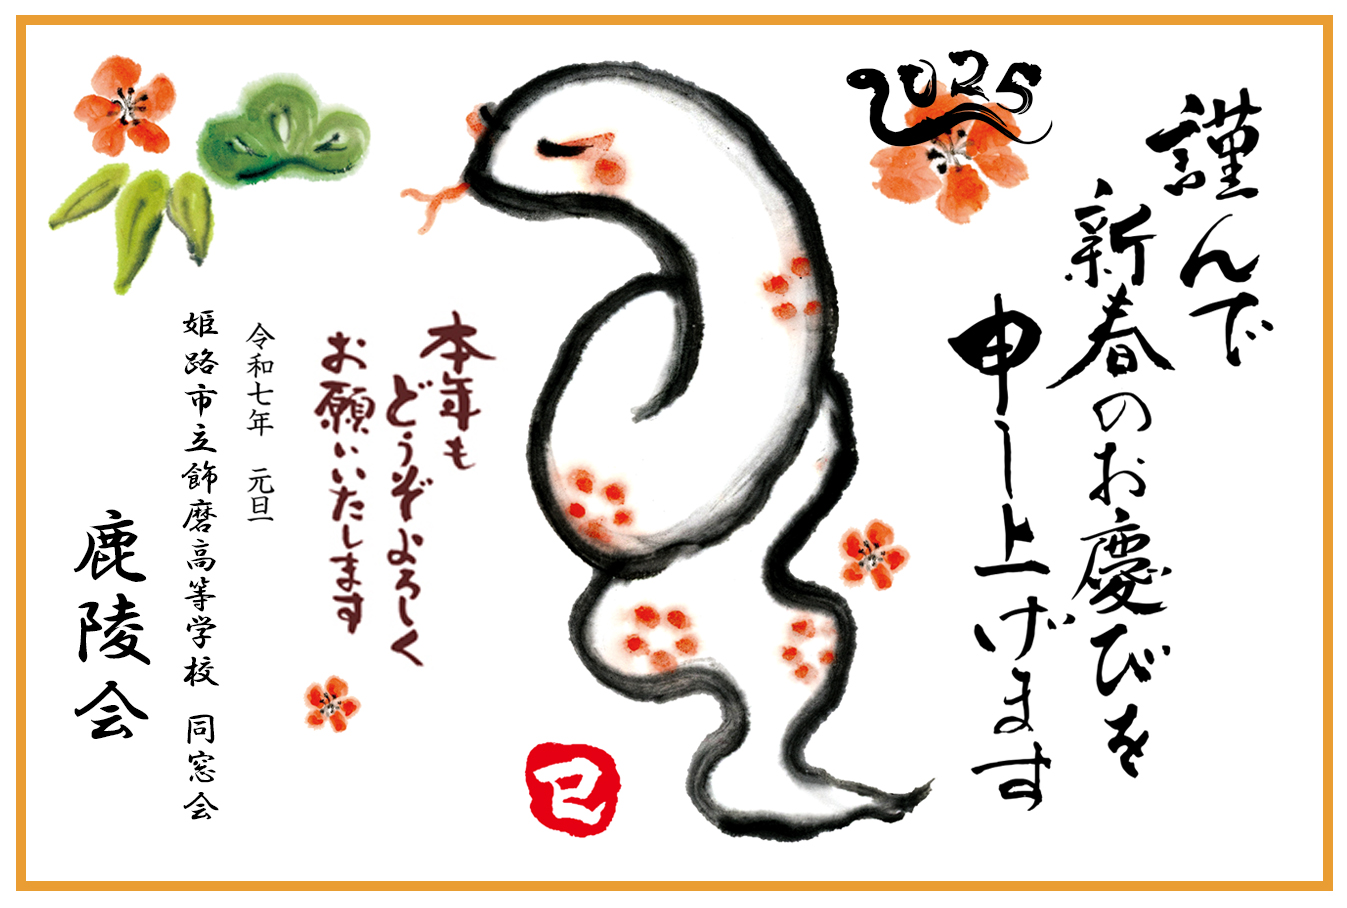 2025
謹んで
新春のお慶びを
申し上げます
本年も
どうぞよろしく
お願いいたします
令和七年　元旦
姫路市立飾磨高等学校　同窓会
鹿陵会
巳